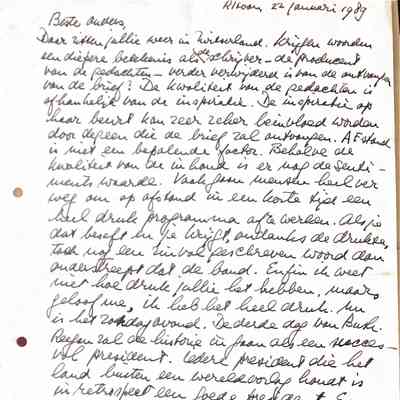 22 januari 1989
Beste ouders,
Daar zitten jullie weer in Zwitserland. Krijgen woorden
een diepere betekenis als de schrijver - de producent
van de gedachten - verder verwijderd is van de ontvanger
van de brief? De kwaliteit van de gedachten is
afhankelijk van de inspiratie. De inspiratie op
haar beurt kan zeer zeker beïnvloed worden
door degeen die de brief zal ontvangen. Afstand
is niet een bepalende factor. Behalve de
kwaliteit van de inhoud is er nog de senti-
mentswaarde. Vaak gaan mensen heel ver
weg om op afstand in een korte tijd een
heel druk programma af te werken. Als je
dat beseft en je krijgt, ondanks de drukte,
toch nog een zinvol geschreven woord dan
onderstreept dat de band. Enfin ik weet
niet hoe druk jullie het hebben, maar
geloof me, ik heb het heel druk. Nu
is het zondagavond. De derde dag van Bush.
Reagan zal de historie in gaan als een succes-
vol president. Iedere president die het
land buiten een wereldoorlog houdt is
in retrospect een goede